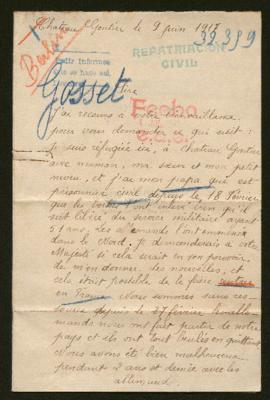 Chateau Gontier le 9 juin 1917
32389
REPATRIACION
CIVIL
Pedir informes
que se hace así.
Gosset
Fecho
Sire
J'ai recours à votre bienveillance
pour vous demander ce qui suit:
Je suis réfugiée ici, à Chateau Gontier
avec maman, ma sœur et mon petit
neveu, et j'ai mon papa qui est
prisonnier civil depuis le 18 Février
que les boches l'ont enlevé bien qu'il
soit libéré du service militaire ayant
51 ans, les allemands l'ont emmené
dans le Nord, je demanderais à votre
Majesté si cela serait en son pouvoir
de m'en donner des nouvelles, et
si cela était possible de le faire rentrer
en France. Nous sommes sans res-
sources depuis le 27 février les alle-
mands nous ont fait partir de notre
pays et ils ont tout brulés en quittant
Nous avons été bien malheureux
pendant 2 ans et demie avec les
allemands